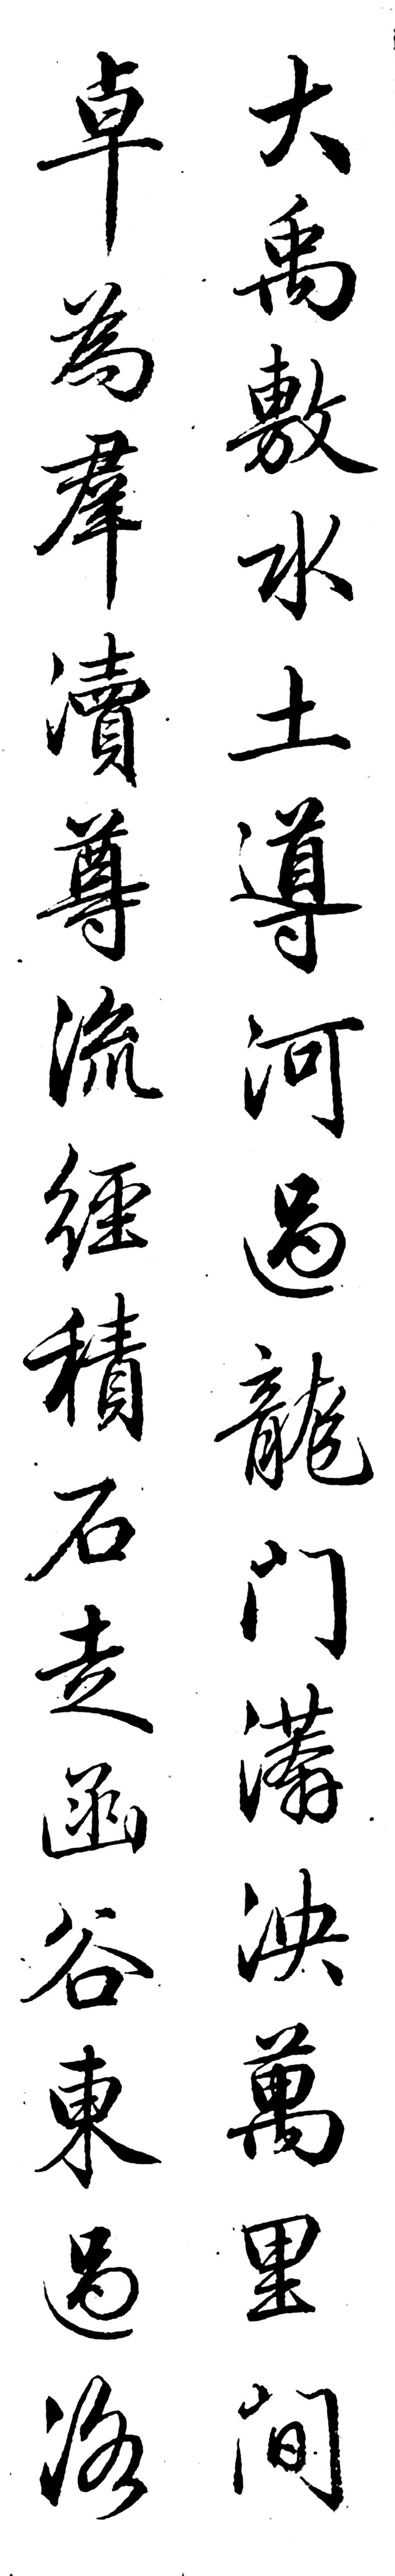 大禹敷水土導河過龍門滿泱萬里間
卓為羣瀆尊流經積石走函谷東過洛